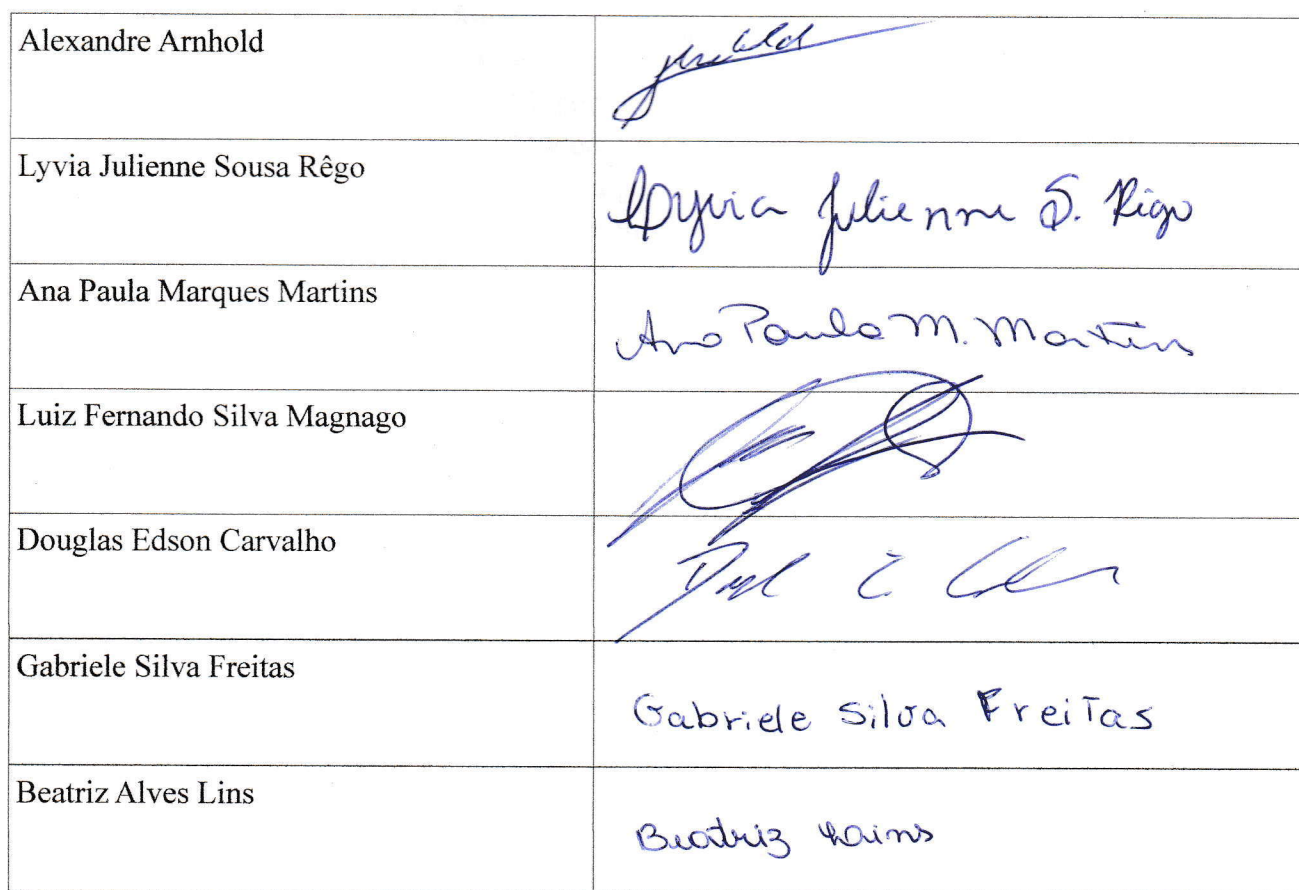 Alexandre Arnhold
Lyvia Julienne Sousa Rêgo
Lyvia Julienne S. Rêgo
Ana Paula Marques Martins
Ana Paula M. Martins
Luiz Fernando Silva Magnago
Douglas Edson Carvalho
Gabriele Silva Freitas
Gabriele Silva Freitas
Beatriz Alves Lins
Beatriz